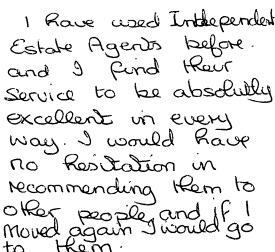 I have used Independent
Estate Agents before.
and I find their
service to be absolutely
excellent in every
way. I would have
no hesitation in
recommending them to
other people, and if I
moved again I would go
to them.